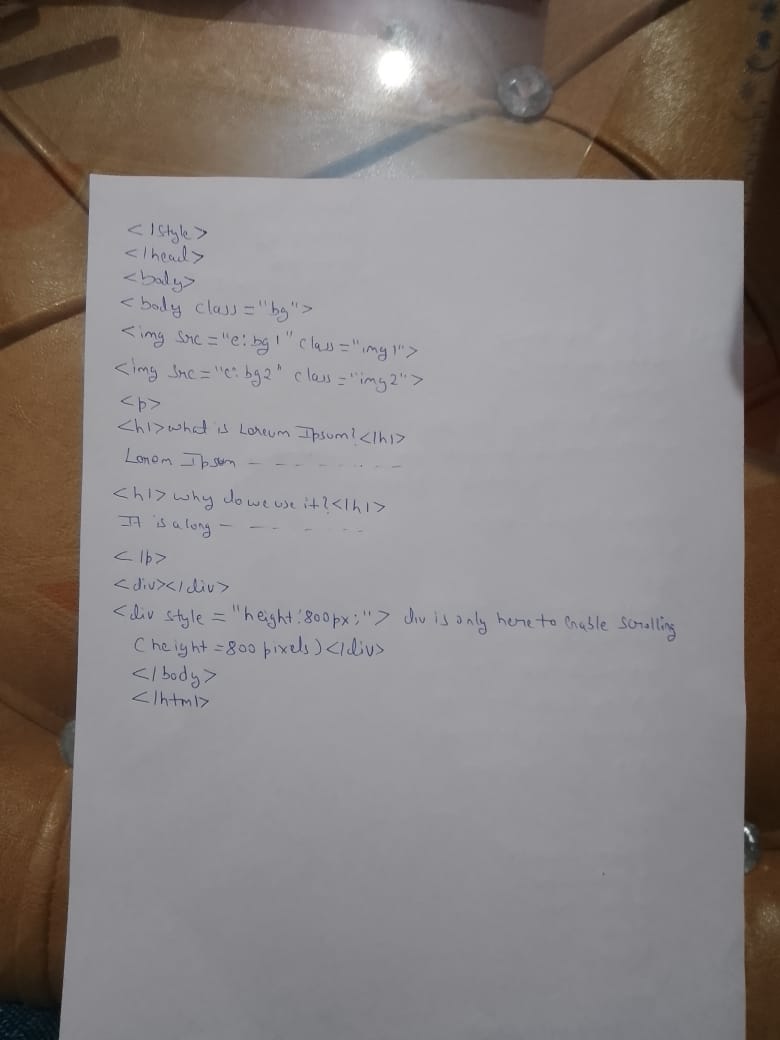 </style>
</head>
<body>
<body class="bg">
<img src="e:bg1" class="img1">
<img src="e:bg2" class="img2">
<p>
<h1>what is Loreum Ipsum?</h1>
Lorem Ipsem - - - - - -
<h1>why do we use it?</h1>
It is a long - - - - - -
</p>
<div></div>
<div style="height:800px;"> div is only here to Enable Scrolling
(height=800 pixels)</div>
</body>
</html>